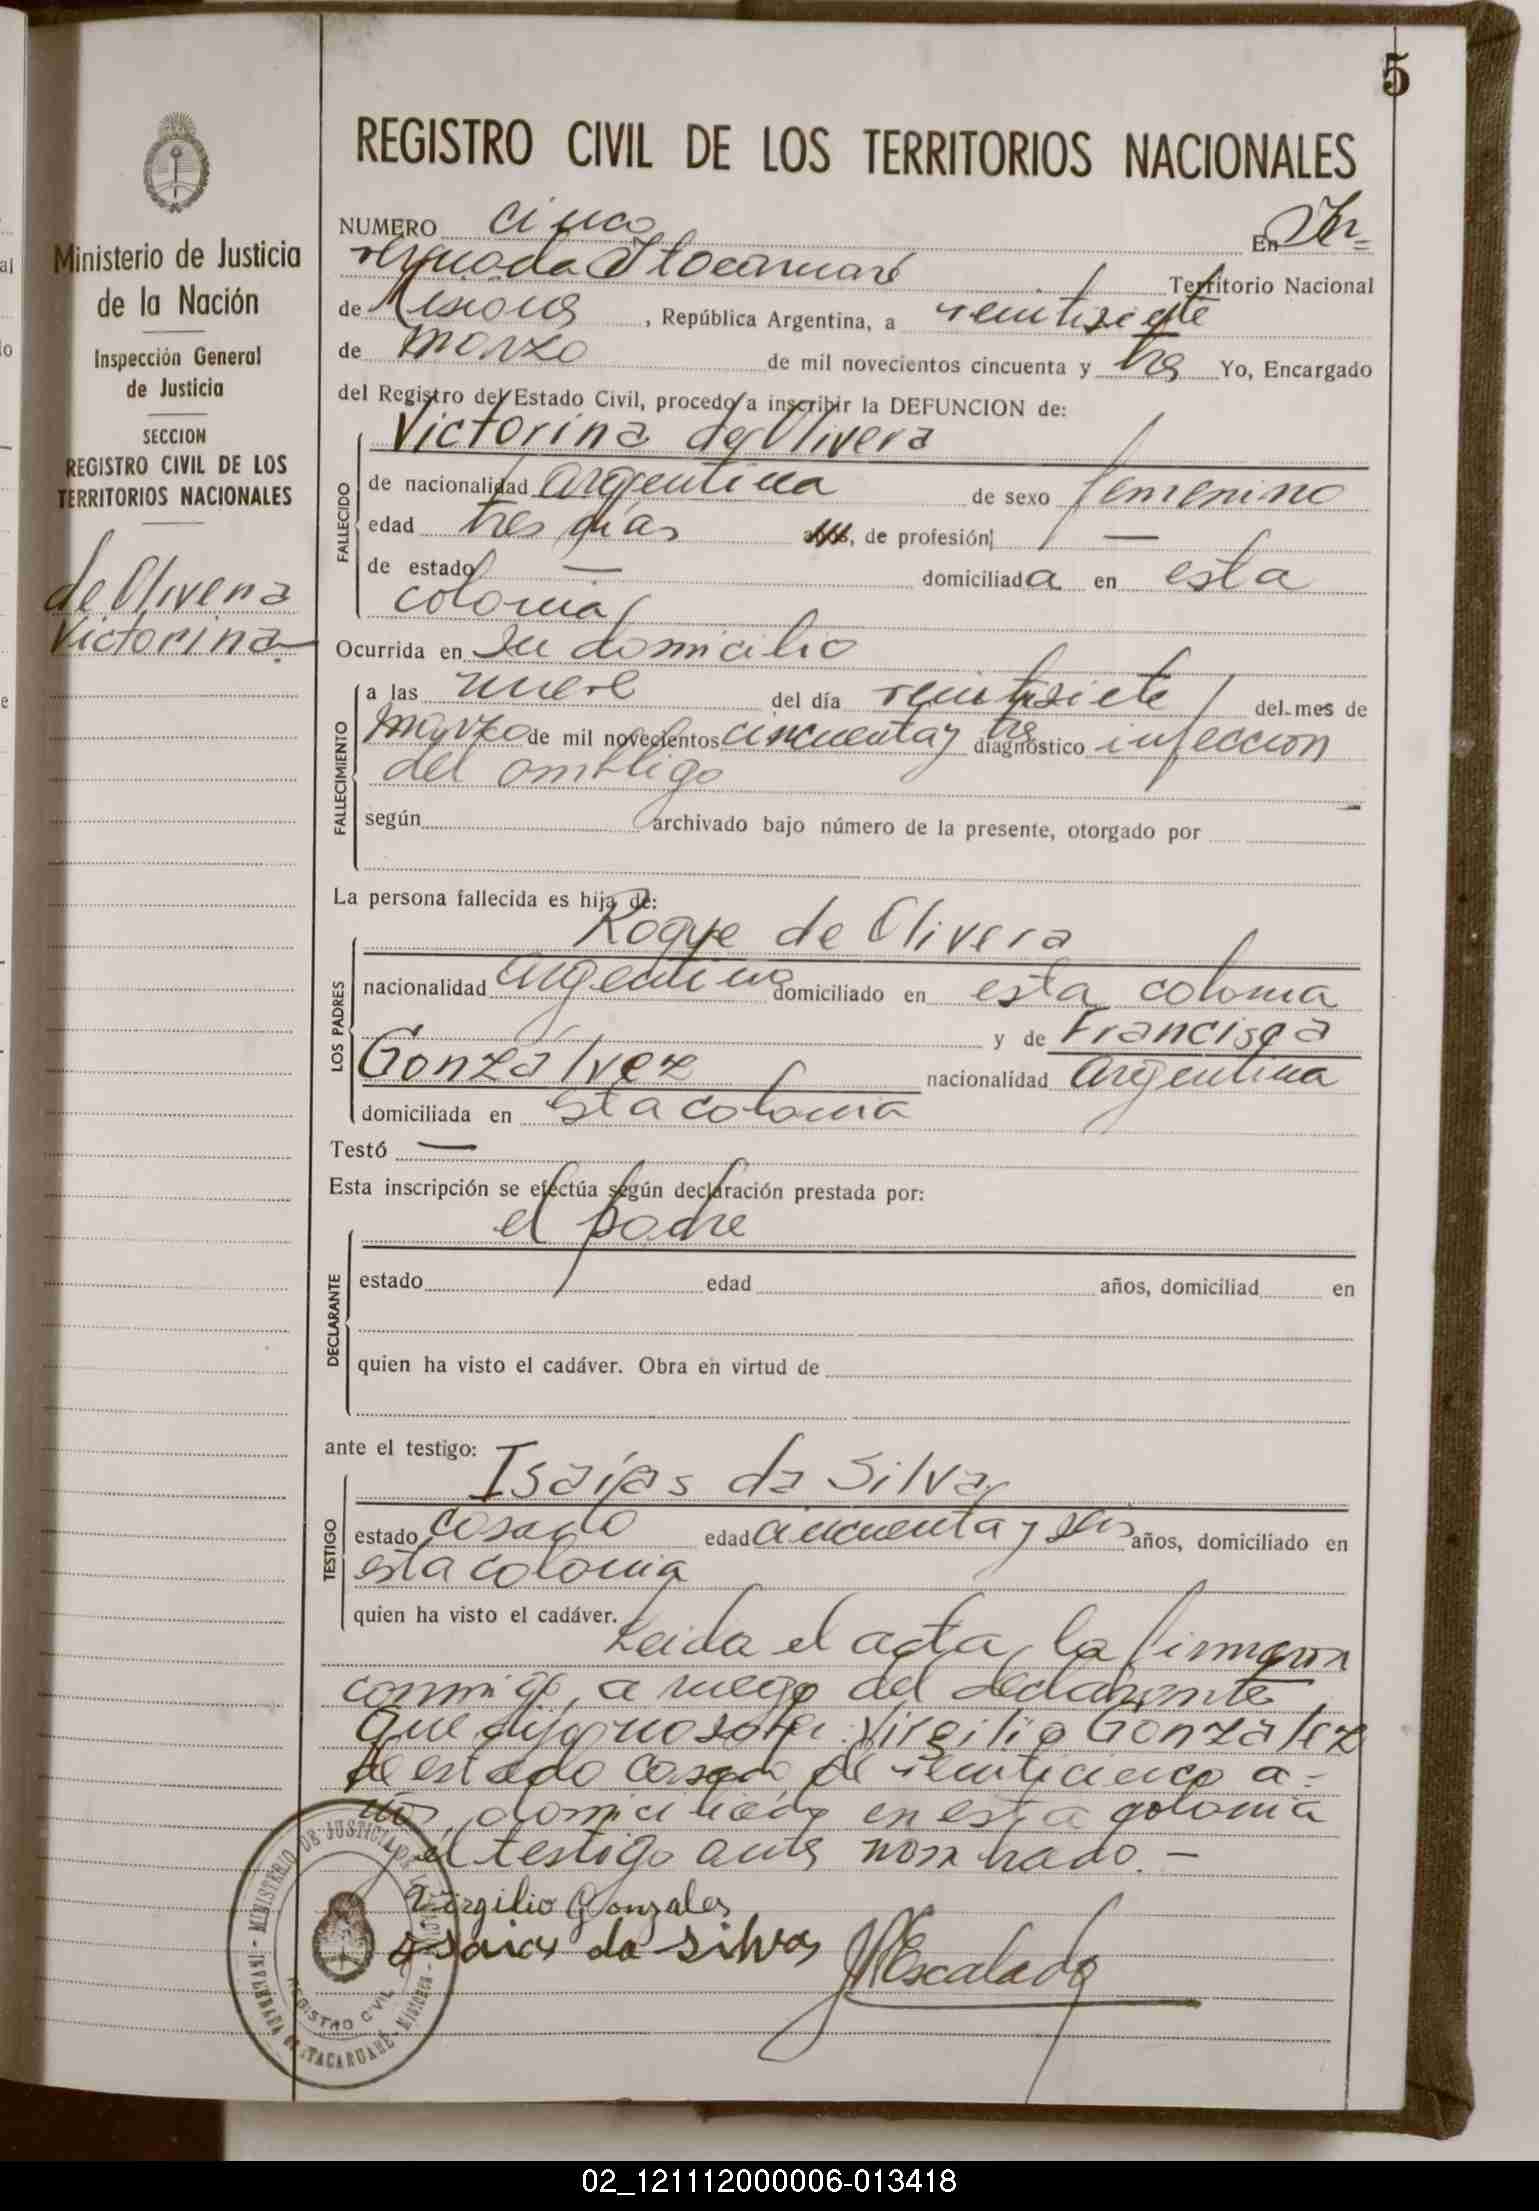 5
REGISTRO CIVIL DE LOS TERRITORIOS NACIONALES
Ministerio de Justicia
de la Nación
Inspección General
de Justicia
SECCION
REGISTRO CIVIL DE LOS
TERRITORIOS NACIONALES
de Olivera
Victorina
NUMERO cinco En In=
vernada Itacaruaré Territorio Nacional
de Misiones, República Argentina, a veintisiete
de marzo de mil novecientos cincuenta y tres Yo, Encargado
del Registro del Estado Civil, procedo a inscribir la DEFUNCION de:
Victorina de Olivera
FALLECIDO
de nacionalidad argentina de sexo femenino
edad tres días años, de profesión —
de estado — domiciliada en esta
colonia
Ocurrida en su domicilio
FALLECIMIENTO
a las nueve del día veintisiete del mes de
marzo de mil novecientos cincuenta y tres diagnóstico infeccion
del ombligo
según archivado bajo número de la presente, otorgado por
La persona fallecida es hija de:
Roque de Olivera
LOS PADRES
nacionalidad argentino domiciliado en esta colonia
y de Francisca
Gonzálvez nacionalidad argentina
domiciliada en esta colonia
Testó —
Esta inscripción se efectúa según declaración prestada por:
el padre
DECLARANTE
estado edad años, domiciliad en
quien ha visto el cadáver. Obra en virtud de
ante el testigo:
Isaías da Silva
TESTIGO
estado casado edad cincuenta y seis años, domiciliado en
esta colonia
quien ha visto el cadáver. Leida el acta, la firmaron
conmigo, a ruego del declarante,
que dijo no saber: Virgilio Gonzalez
de estado casado, de veinticinco a=
ños, domiciliado en esta colonia
y el testigo antes nombrado. —
Virgilio Gonzales
Isaias da silva
Escalada
MINISTERIO DE JUSTICIA DE LA NACION
REGISTRO CIVIL
INVERNADA DE ITACARUARÉ - MISIONES -
02_121112000006-013418